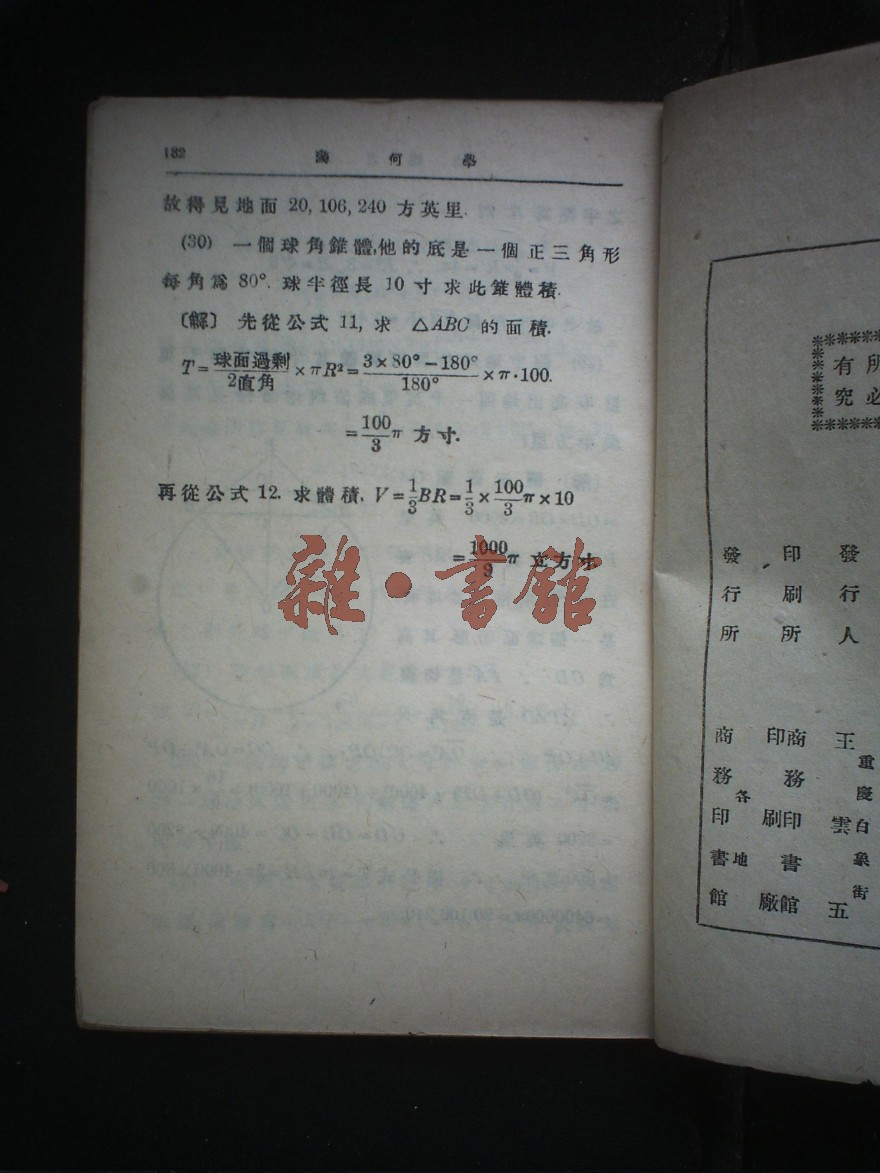 182 幾何學
故得見地面 20,106,240 方英里.
(30) 一個球角錐體,他的底是一個正三角形
每角爲 80°. 球半徑長 10 寸求此錐體積.
〔解〕 先從公式 11, 求 △ABC 的面積.
T = 球面過剩/2直角 × πR² = (3×80°−180°)/180° × π·100.
= 100/3 π 方寸.
再從公式 12. 求體積. V = 1/3 BR = 1/3 × 100/3 π × 10
= 1000/9 π 立方寸.
雜·書館
所
有
必
究
發行人 王雲五
重慶白象街
印刷所 商務印書館
印刷廠
發行所 商務印書館
各地